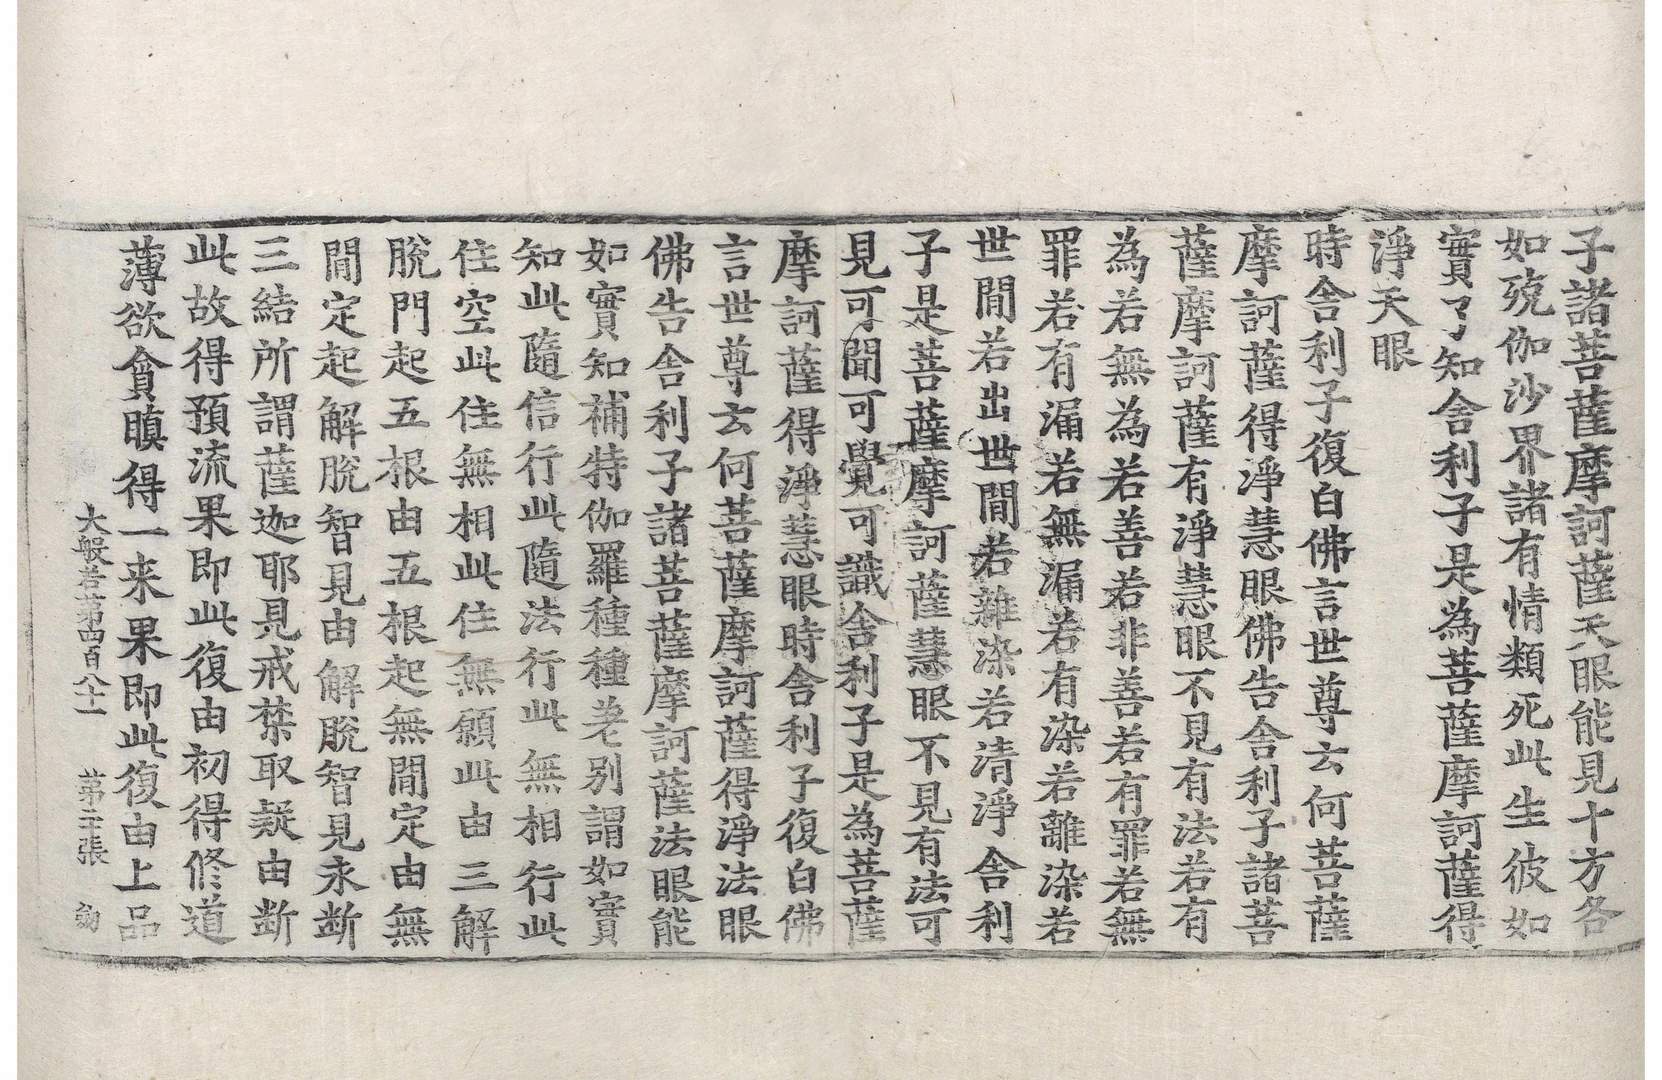 子諸菩薩摩訶薩天眼能見十方各
如殑伽沙界諸有情類死此生彼如
實了知舍利子是為菩薩摩訶薩得
淨天眼
時舍利子復白佛言世尊云何菩薩
摩訶薩得淨慧眼佛告舍利子諸菩
薩摩訶薩有淨慧眼不見有法若有
為若無為若善若非善若有罪若無
罪若有漏若無漏若有染若離染若
世間若出世間若雜染若清淨舍利
子是菩薩摩訶薩慧眼不見有法可
見可聞可覺可識舍利子是為菩薩
摩訶薩得淨慧眼時舍利子復白佛
言世尊云何菩薩摩訶薩得淨法眼
佛告舍利子諸菩薩摩訶薩法眼能
如實知補特伽羅種種差別謂如實
知此隨信行此隨法行此無相行此
住空此住無相此住無願此由三解
脫門起五根由五根起無間定由無
間定起解脫智見由解脫智見永斷
三結所謂薩迦耶見戒禁取疑由斷
此故得預流果即此復由初得修道
薄欲貪瞋得一来果即此復由上品
大般若第四百八十一 第三張